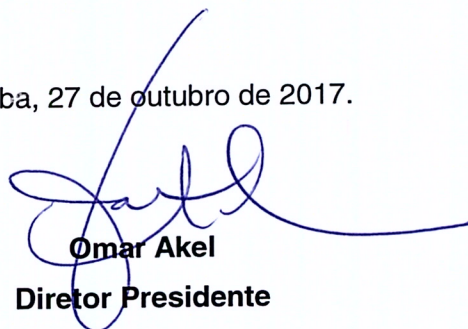 ba, 27 de outubro de 2017.
Omar Akel
Diretor Presidente